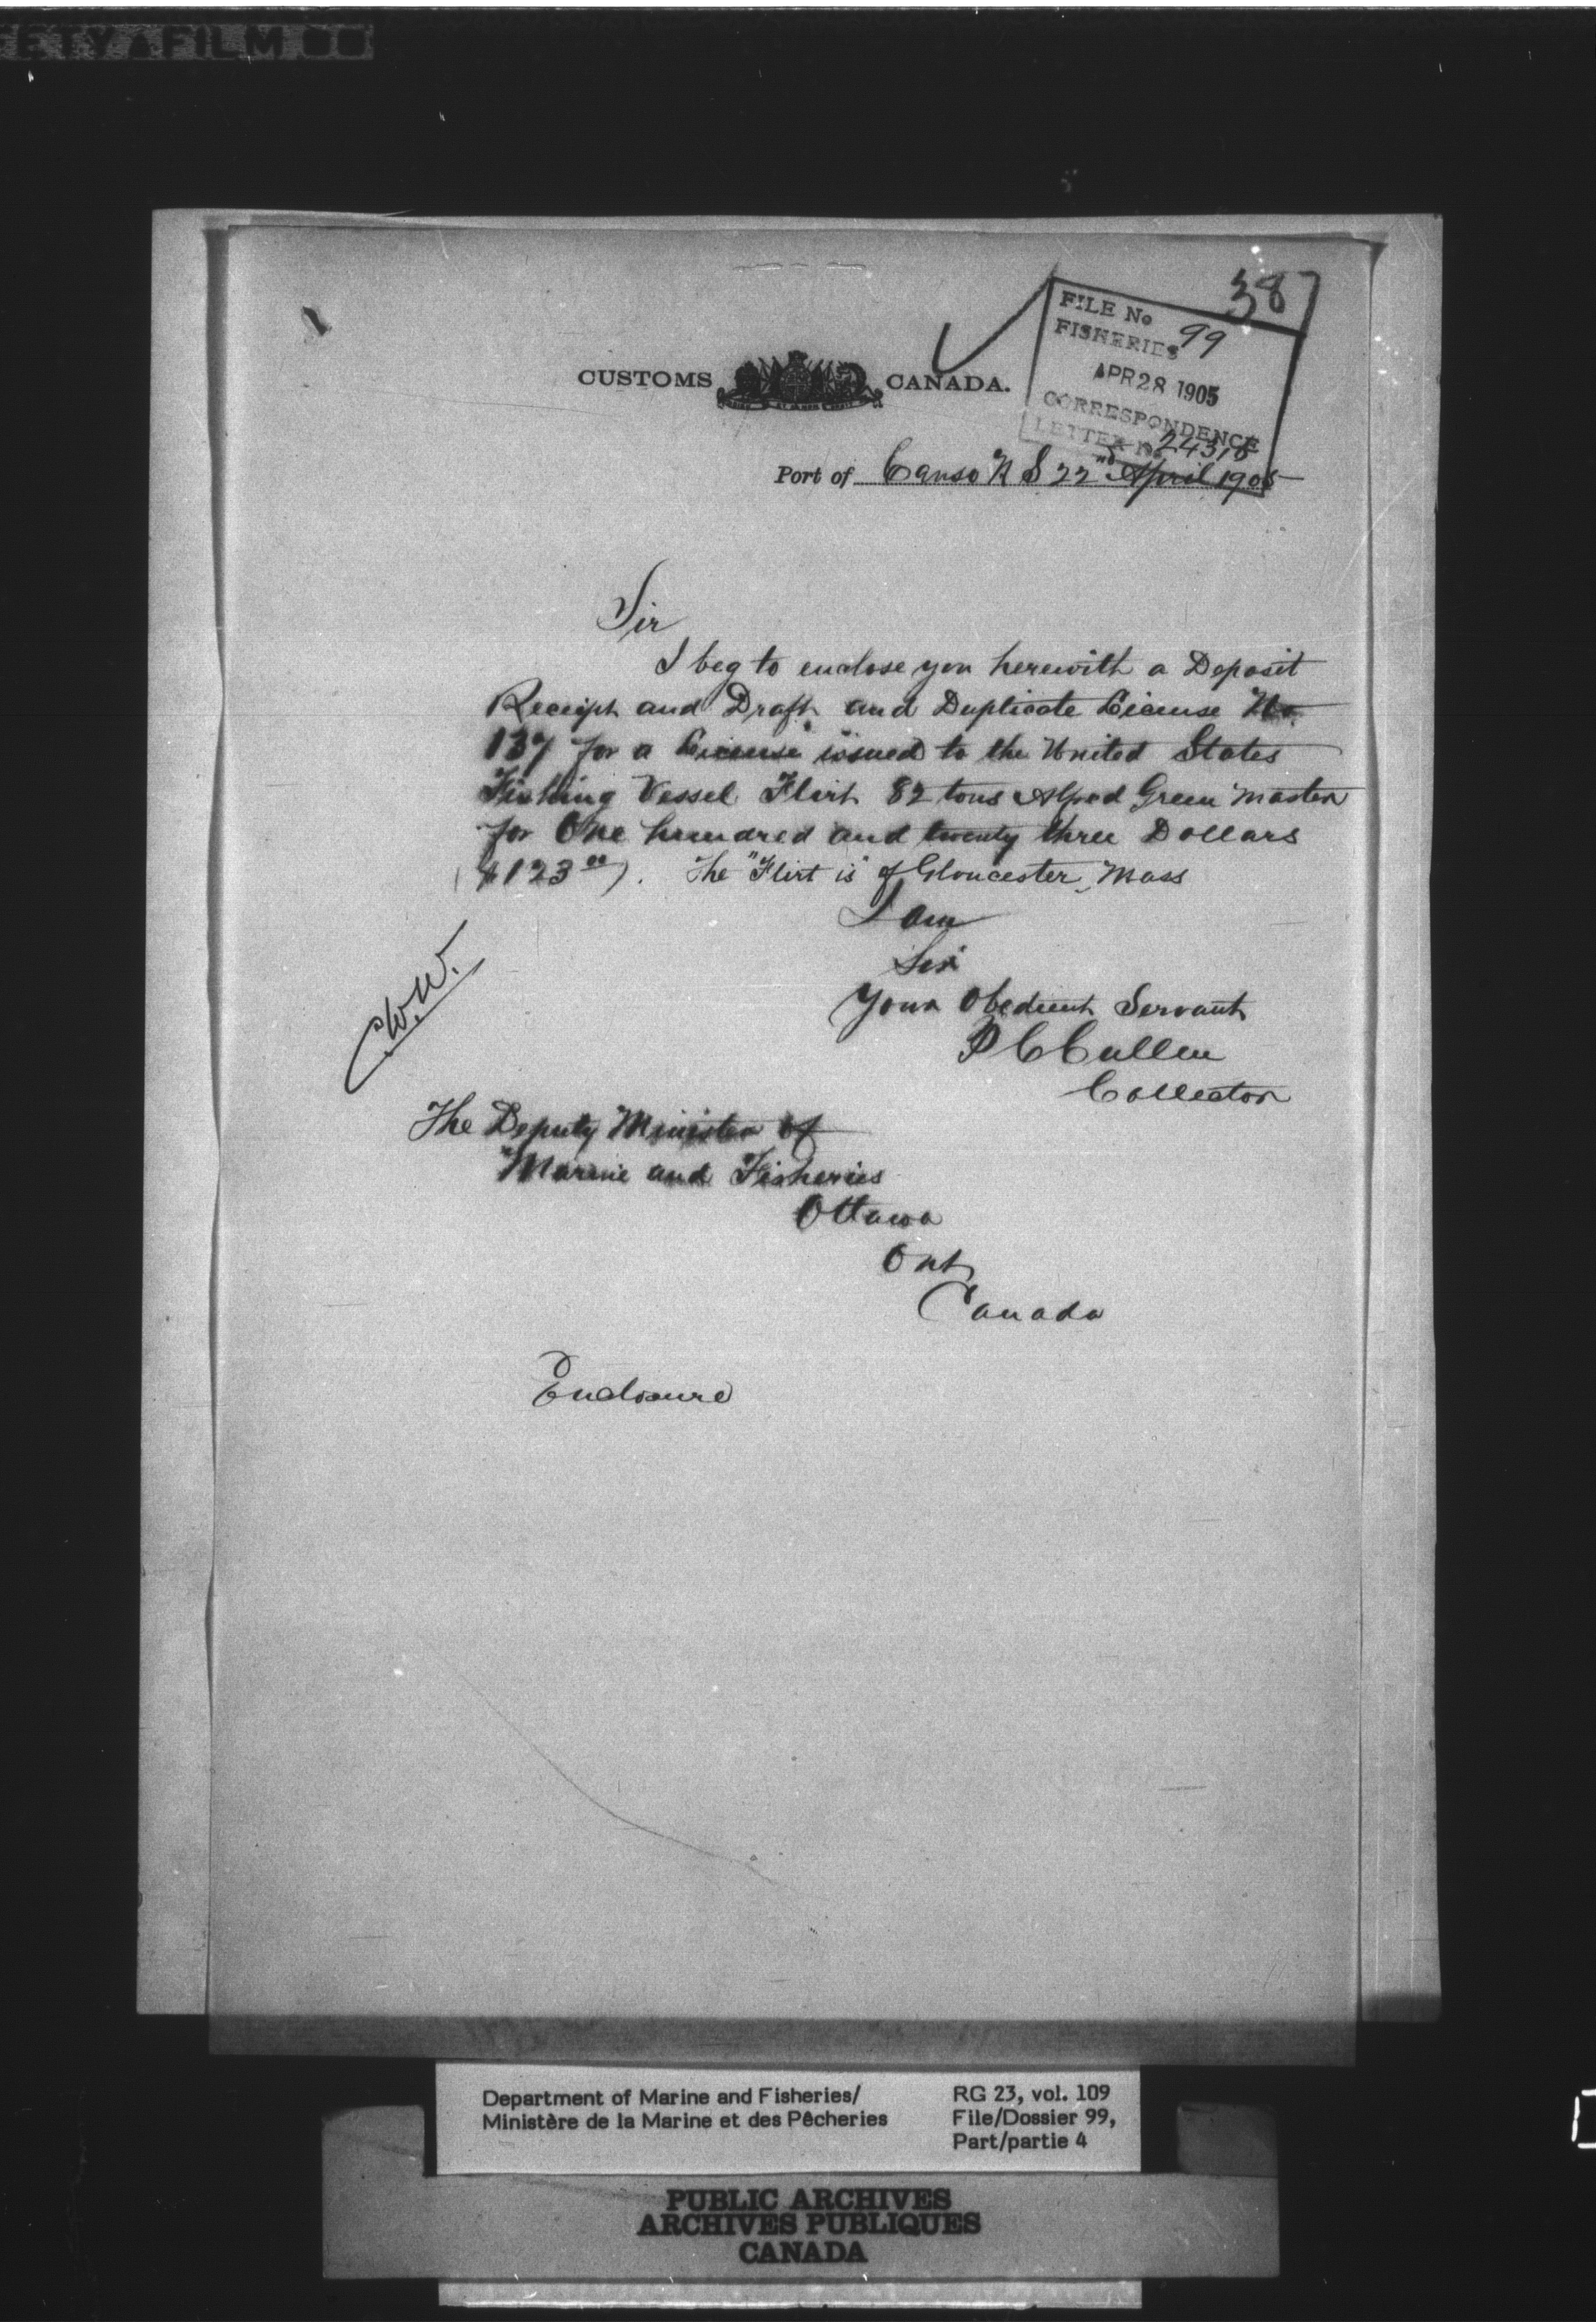 38
FILE No 99
FISHERIES
APR 28 1905
CORRESPONDENCE
LETTER No 24316
CUSTOMS CANADA.
Port of Canso N S 22nd April 1905
Sir
I beg to enclose you herewith a Deposit
Receipt and Draft and Duplicate License No
137 for a License issued to the United States
Fishing Vessel Flirt 82 tons Alfred Green Master
for One hundred and twenty three Dollars
($123.00). The "Flirt is" of Gloucester, Mass
I am
Sir
Your Obedient Servant
P C Cullen
Collector
C.W.W.
The Deputy Minister of
Marine and Fisheries
Ottawa
Ont
Canada
Enclosure
Department of Marine and Fisheries/
Ministère de la Marine et des Pêcheries
RG 23, vol. 109
File/Dossier 99,
Part/partie 4
PUBLIC ARCHIVES
ARCHIVES PUBLIQUES
CANADA